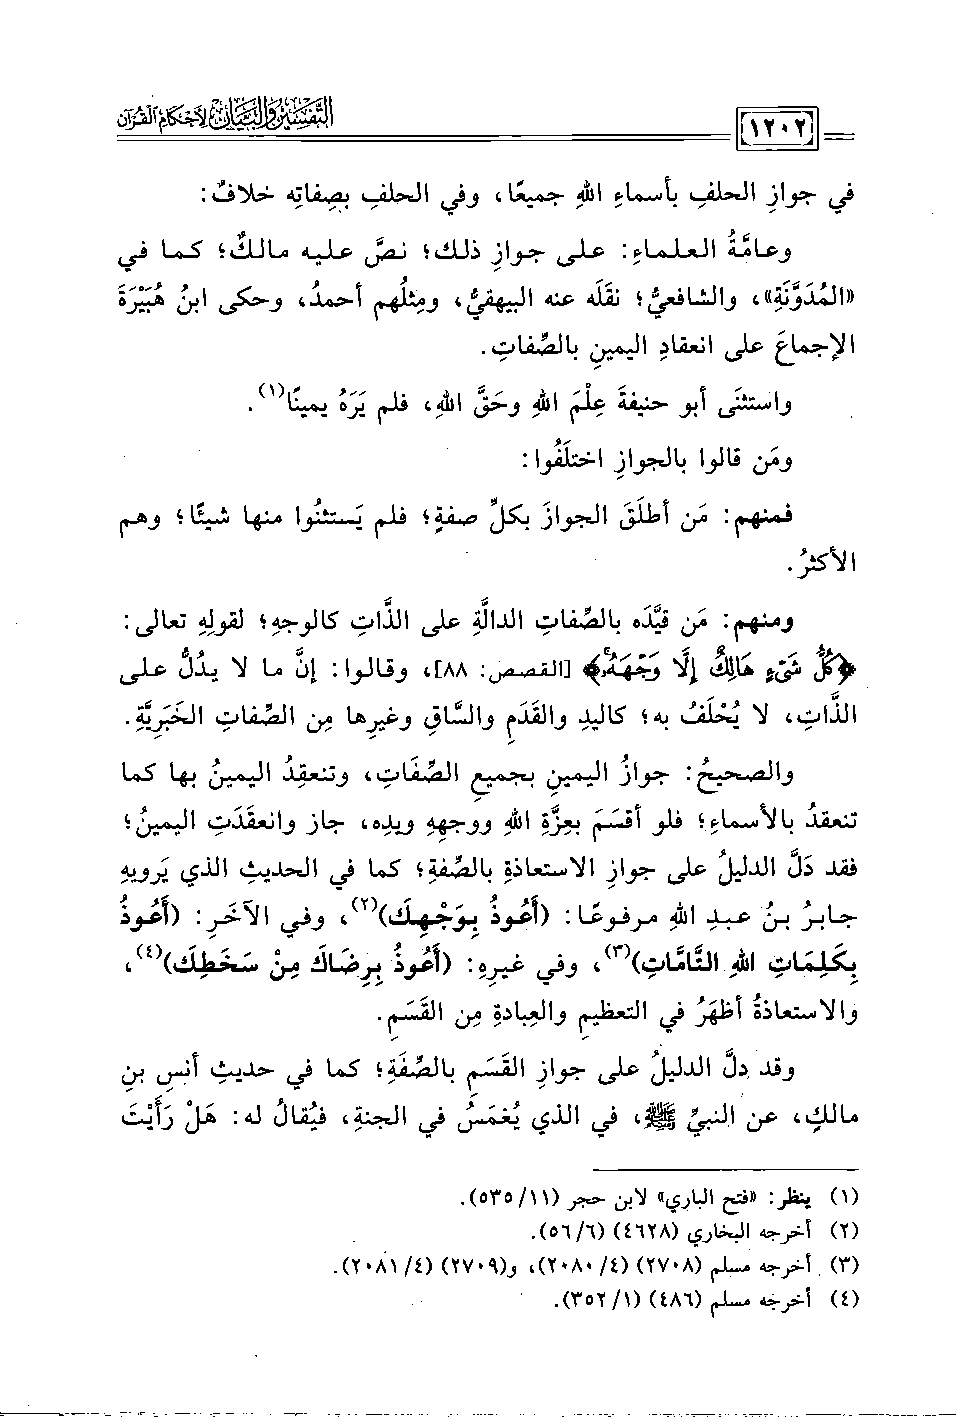 ١٢٠٢
التفسير والبيان لأحكام القرآن
في جوازِ الحلفِ بأسماءِ اللهِ جميعًا، وفي الحلفِ بصِفاتِه خلافٌ:
وعامَّةُ العلماءِ: على جوازِ ذلك؛ نصَّ عليه مالكٌ؛ كما في
«المُدَوَّنَةِ»، والشافعيُّ؛ نقَلَه عنه البيهقيُّ، ومِثلُهم أحمدُ، وحكى ابنُ هُبَيْرَةَ
الإجماعَ على انعقادِ اليمينِ بالصِّفاتِ.
واستثنَى أبو حنيفةَ عِلْمَ اللهِ وحَقَّ اللهِ، فلم يَرَهُ يمينًا(١).
ومَن قالوا بالجوازِ اختلَفُوا:
فمنهم: مَن أطلَقَ الجوازَ بكلِّ صفةٍ؛ فلم يَستثنُوا منها شيئًا؛ وهم
الأكثرُ.
ومنهم: مَن قيَّدَه بالصِّفاتِ الدالَّةِ على الذَّاتِ كالوجهِ؛ لقولِهِ تعالى:
﴿كُلُّ شَيْءٍ هَالِكٌ إِلَّا وَجْهَهُۥ﴾ [القصص: ٨٨]، وقالوا: إنَّ ما لا يدُلُّ على
الذَّاتِ، لا يُحْلَفُ به؛ كاليدِ والقَدَمِ والسَّاقِ وغيرِها مِن الصِّفاتِ الخَبَريَّةِ.
والصحيحُ: جوازُ اليمينِ بجميعِ الصِّفَاتِ، وتنعقِدُ اليمينُ بها كما
تنعقدُ بالأسماءِ؛ فلو أقسَمَ بعِزَّةِ اللهِ ووجهِهِ ويدِه، جاز وانعقَدَتِ اليمينُ؛
فقد دَلَّ الدليلُ على جوازِ الاستعاذةِ بالصِّفةِ؛ كما في الحديثِ الذي يَرويهِ
جابرُ بنُ عبدِ اللهِ مرفوعًا: (أَعُوذُ بِوَجْهِكَ)(٢)، وفي الآخَرِ: (أَعُوذُ
بِكَلِمَاتِ اللهِ التَّامَّاتِ)(٣)، وفي غيرِهِ: (أَعُوذُ بِرِضَاكَ مِنْ سَخَطِكَ)(٤)،
والاستعاذةُ أظهَرُ في التعظيمِ والعِبادةِ مِن القَسَمِ.
وقد دلَّ الدليلُ على جوازِ القَسَمِ بالصِّفَةِ؛ كما في حديثِ أنسِ بنِ
مالكٍ، عن النبيِّ ﷺ، في الذي يُغمَسُ في الجنةِ، فيُقالُ له: هَلْ رَأَيْتَ
(١) ينظر: «فتح الباري» لابن حجر (٥٣٥/١١).
(٢) أخرجه البخاري (٤٦٢٨) (٥٦/٦).
(٣) أخرجه مسلم (٢٧٠٨) (٢٠٨٠/٤)، و(٢٧٠٩) (٢٠٨١/٤).
(٤) أخرجه مسلم (٤٨٦) (٣٥٢/١).